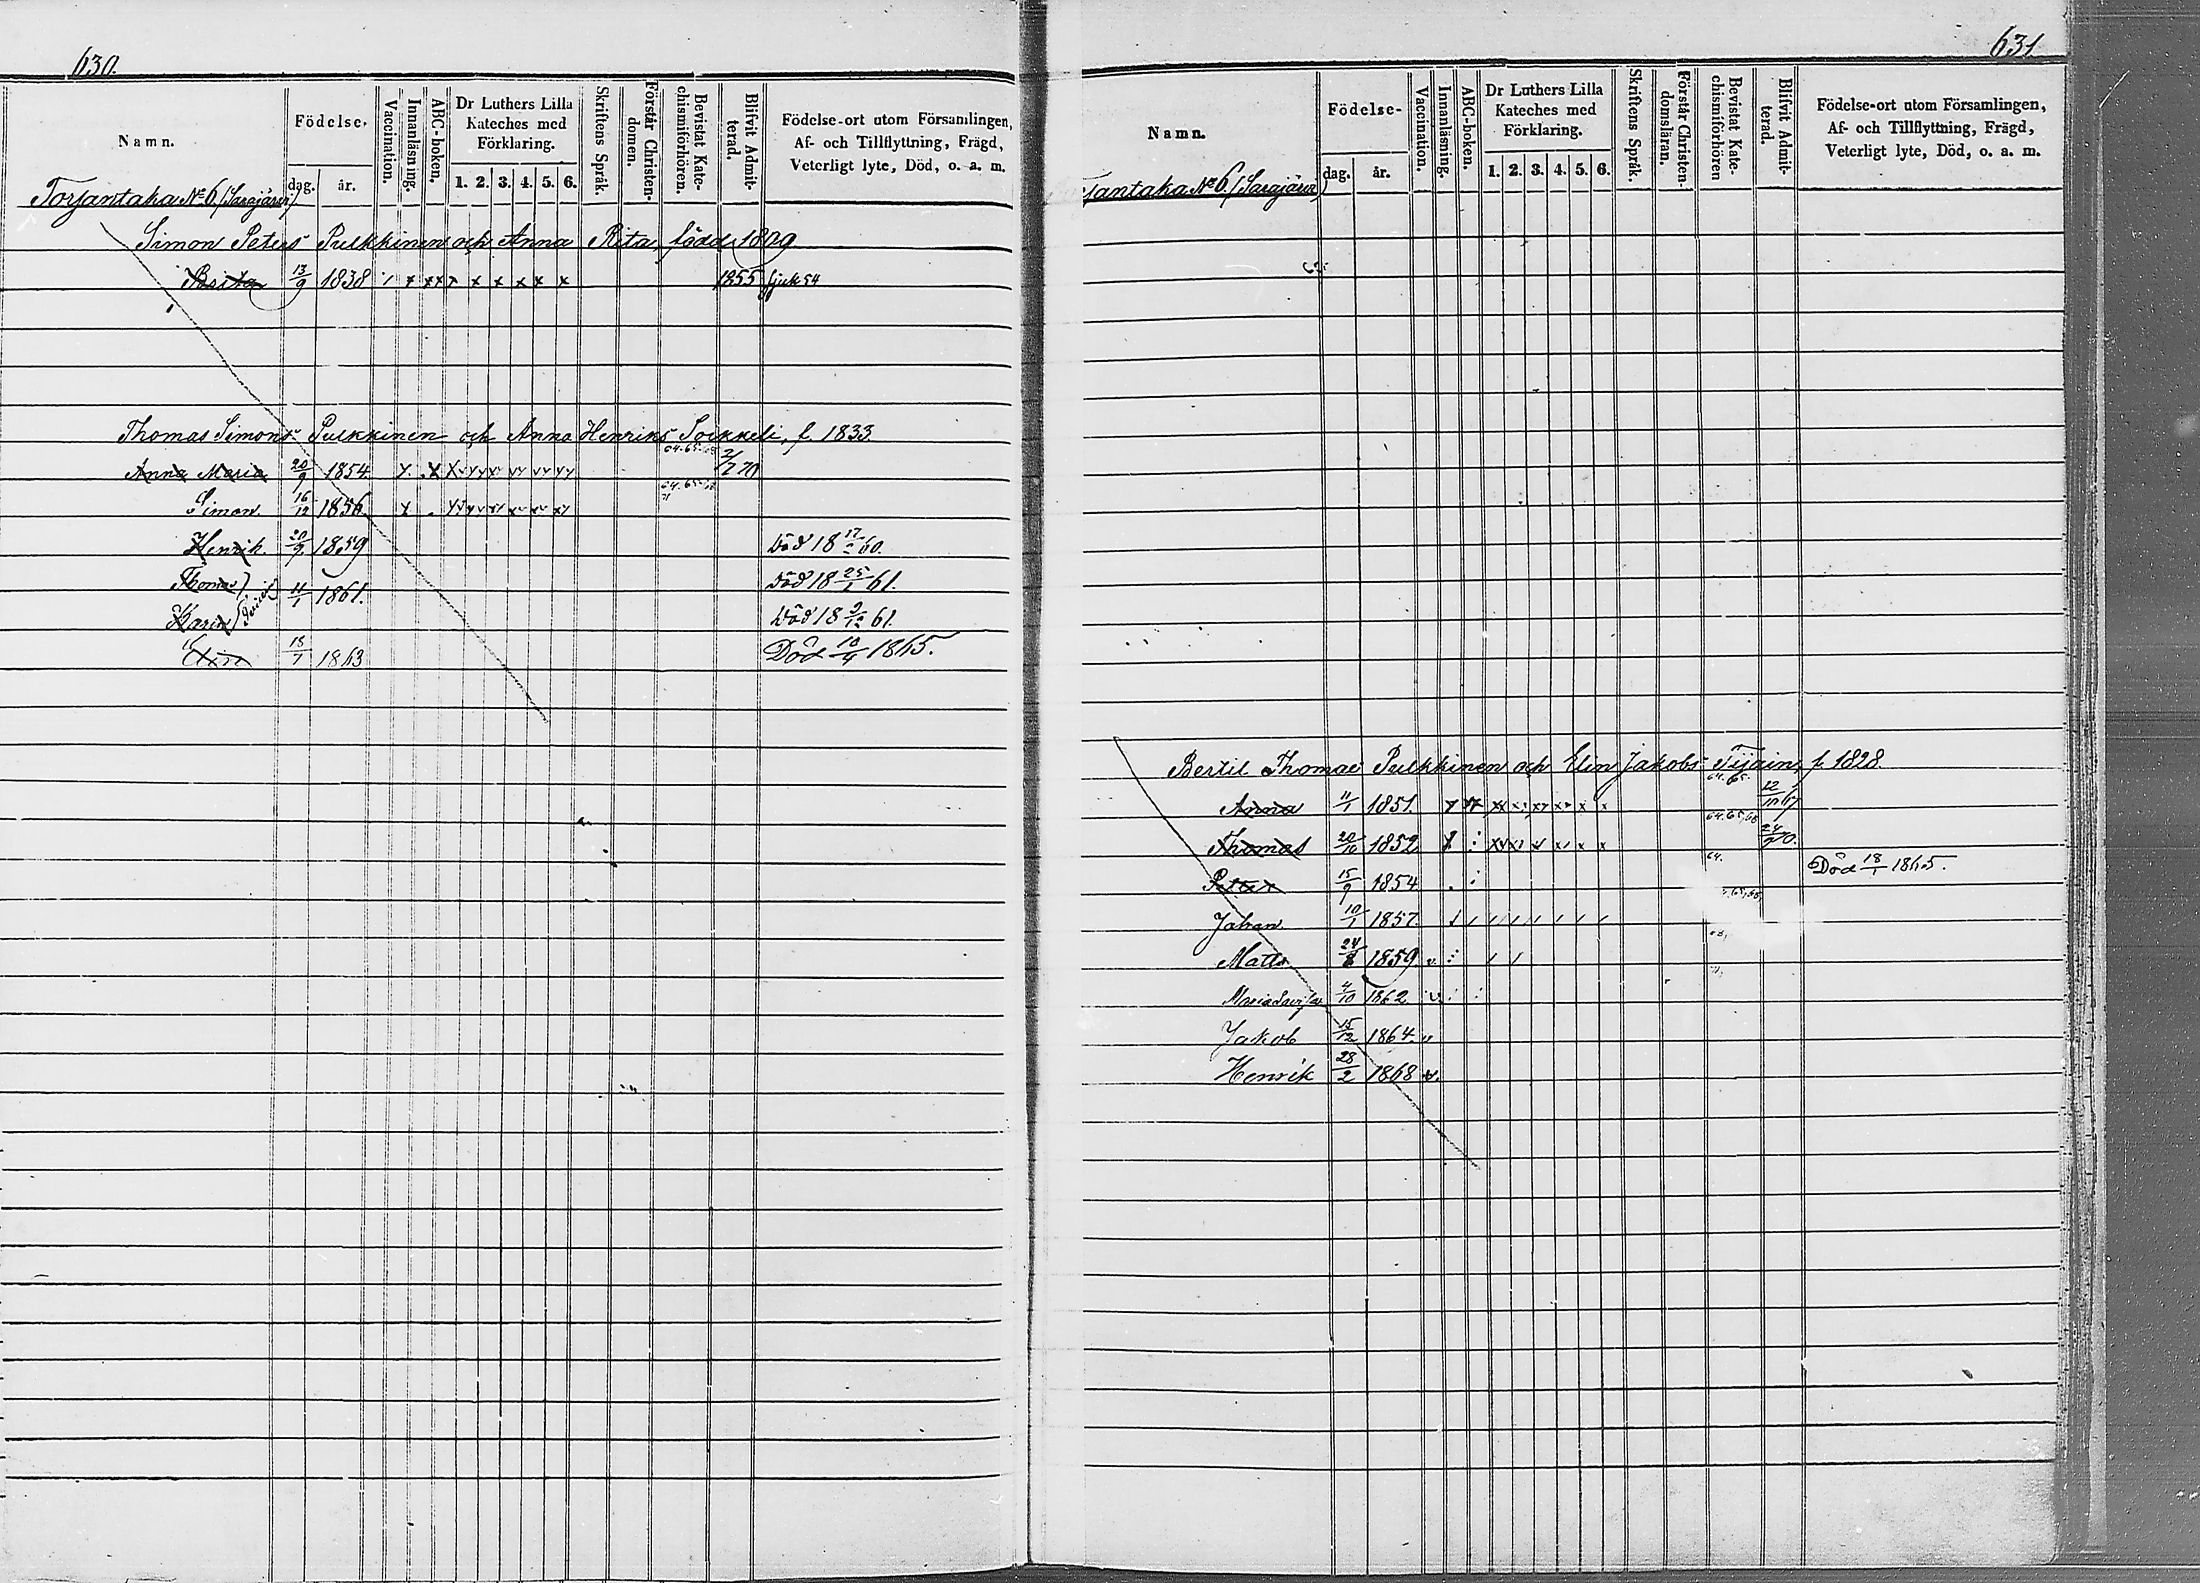 630.
Namn.
Födelse-
dag. år.
Vaccination.
Innanläsning.
ABC-boken.
Dr Luthers Lilla Kateches med Förklaring.
1. 2. 3. 4. 5. 6.
Skriftens Språk.
Förstår Christen-domen.
Bevistat Kate-chismiförhören.
Blifvit Admit-terad.
Födelse-ort utom Församlingen,
Af- och Tillflyttning, Frägd,
Veterligt lyte, Död, o. a. m.
Torsantaka No 6 (Sarajärvi)
Simon Peters Pulkkinen och Anna Rita, född 1809
13/9 1838 / x xx x x x x x x 1855 sjuk 54
Thomas Simons Pulkkinen och Anna Henriks Soikkeli, f. 1833.
Anna Maria 20/9 1854. 2/7 70
Simon. 16/12 1856.
Henrik. 20/9 1859 Död 18 60.
Thomas 11/1 1861. Död 18 25/1 61.
Karin Död 18 61.
Elin 1863 Död 1865.
631
Namn.
Födelse-
dag. år.
Vaccination.
Innanläsning.
ABC-boken.
Dr Luthers Lilla Kateches med Förklaring.
1. 2. 3. 4. 5. 6.
Skriftens Språk.
Förstår Christen-domsläran.
Bevistat Kate-chismiförhören
Blifvit Admit-terad.
Födelse-ort utom Församlingen,
Af- och Tillflyttning, Frägd,
Veterligt lyte, Död, o. a. m.
santaka No 6 (Sarajärvi)
Bertil Thomae Pulkkinen och Elin Jakobs f. 1828.
64. 65.
Anna 11/1 1851.
64. 65, 68
Thomas 20/10 1852
64.
Petter 15/9 1854 Död 18/1 1865.
Johan 10/1 1857.
Matts 1859
Maria 4/10 1862
Jakob 15/12 1864
Henrik 28/2 1868